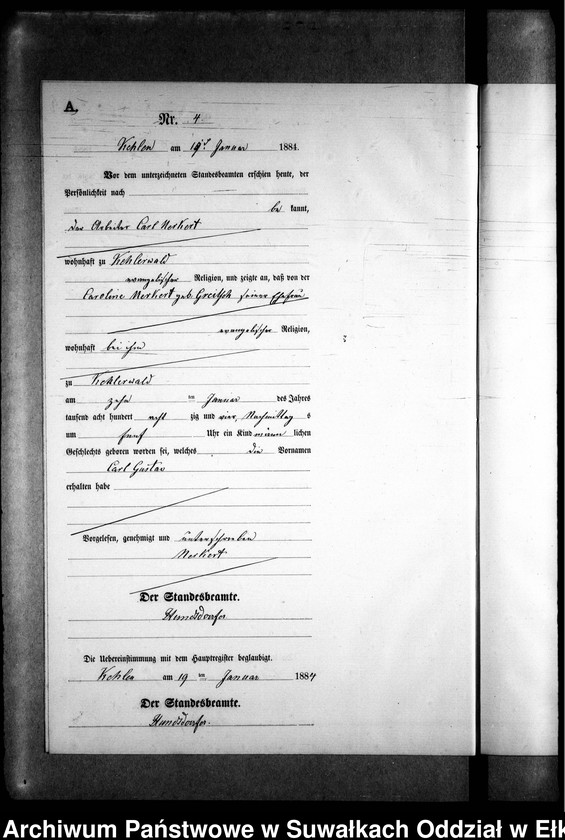 A.
Nr. 4
am 19t Januar 1884.
Vor dem unterzeichneten Standesbeamten erschien heute, der
Persönlichkeit nach
be kannt,
der Arbeiter Carl
wohnhaft zu
evangelischer Religion, und zeigte an, daß von der
Caroline geb. seiner Ehefrau
evangelischer Religion,
wohnhaft bei ihm
zu
am zehn ten Januar des Jahres
tausend acht hundert acht zig und vier, Nachmittag s
um fünf Uhr ein Kind männ lichen
Geschlechts geboren worden sei, welches die Vornamen
Carl Gustav
erhalten habe
Vorgelesen, genehmigt und unterschrieben
Der Standesbeamte.
Die Uebereinstimmung mit dem Hauptregister beglaubigt.
am 19 ten Januar 1884
Der Standesbeamte.
Archiwum Państwowe w Suwałkach Oddział w Ełk